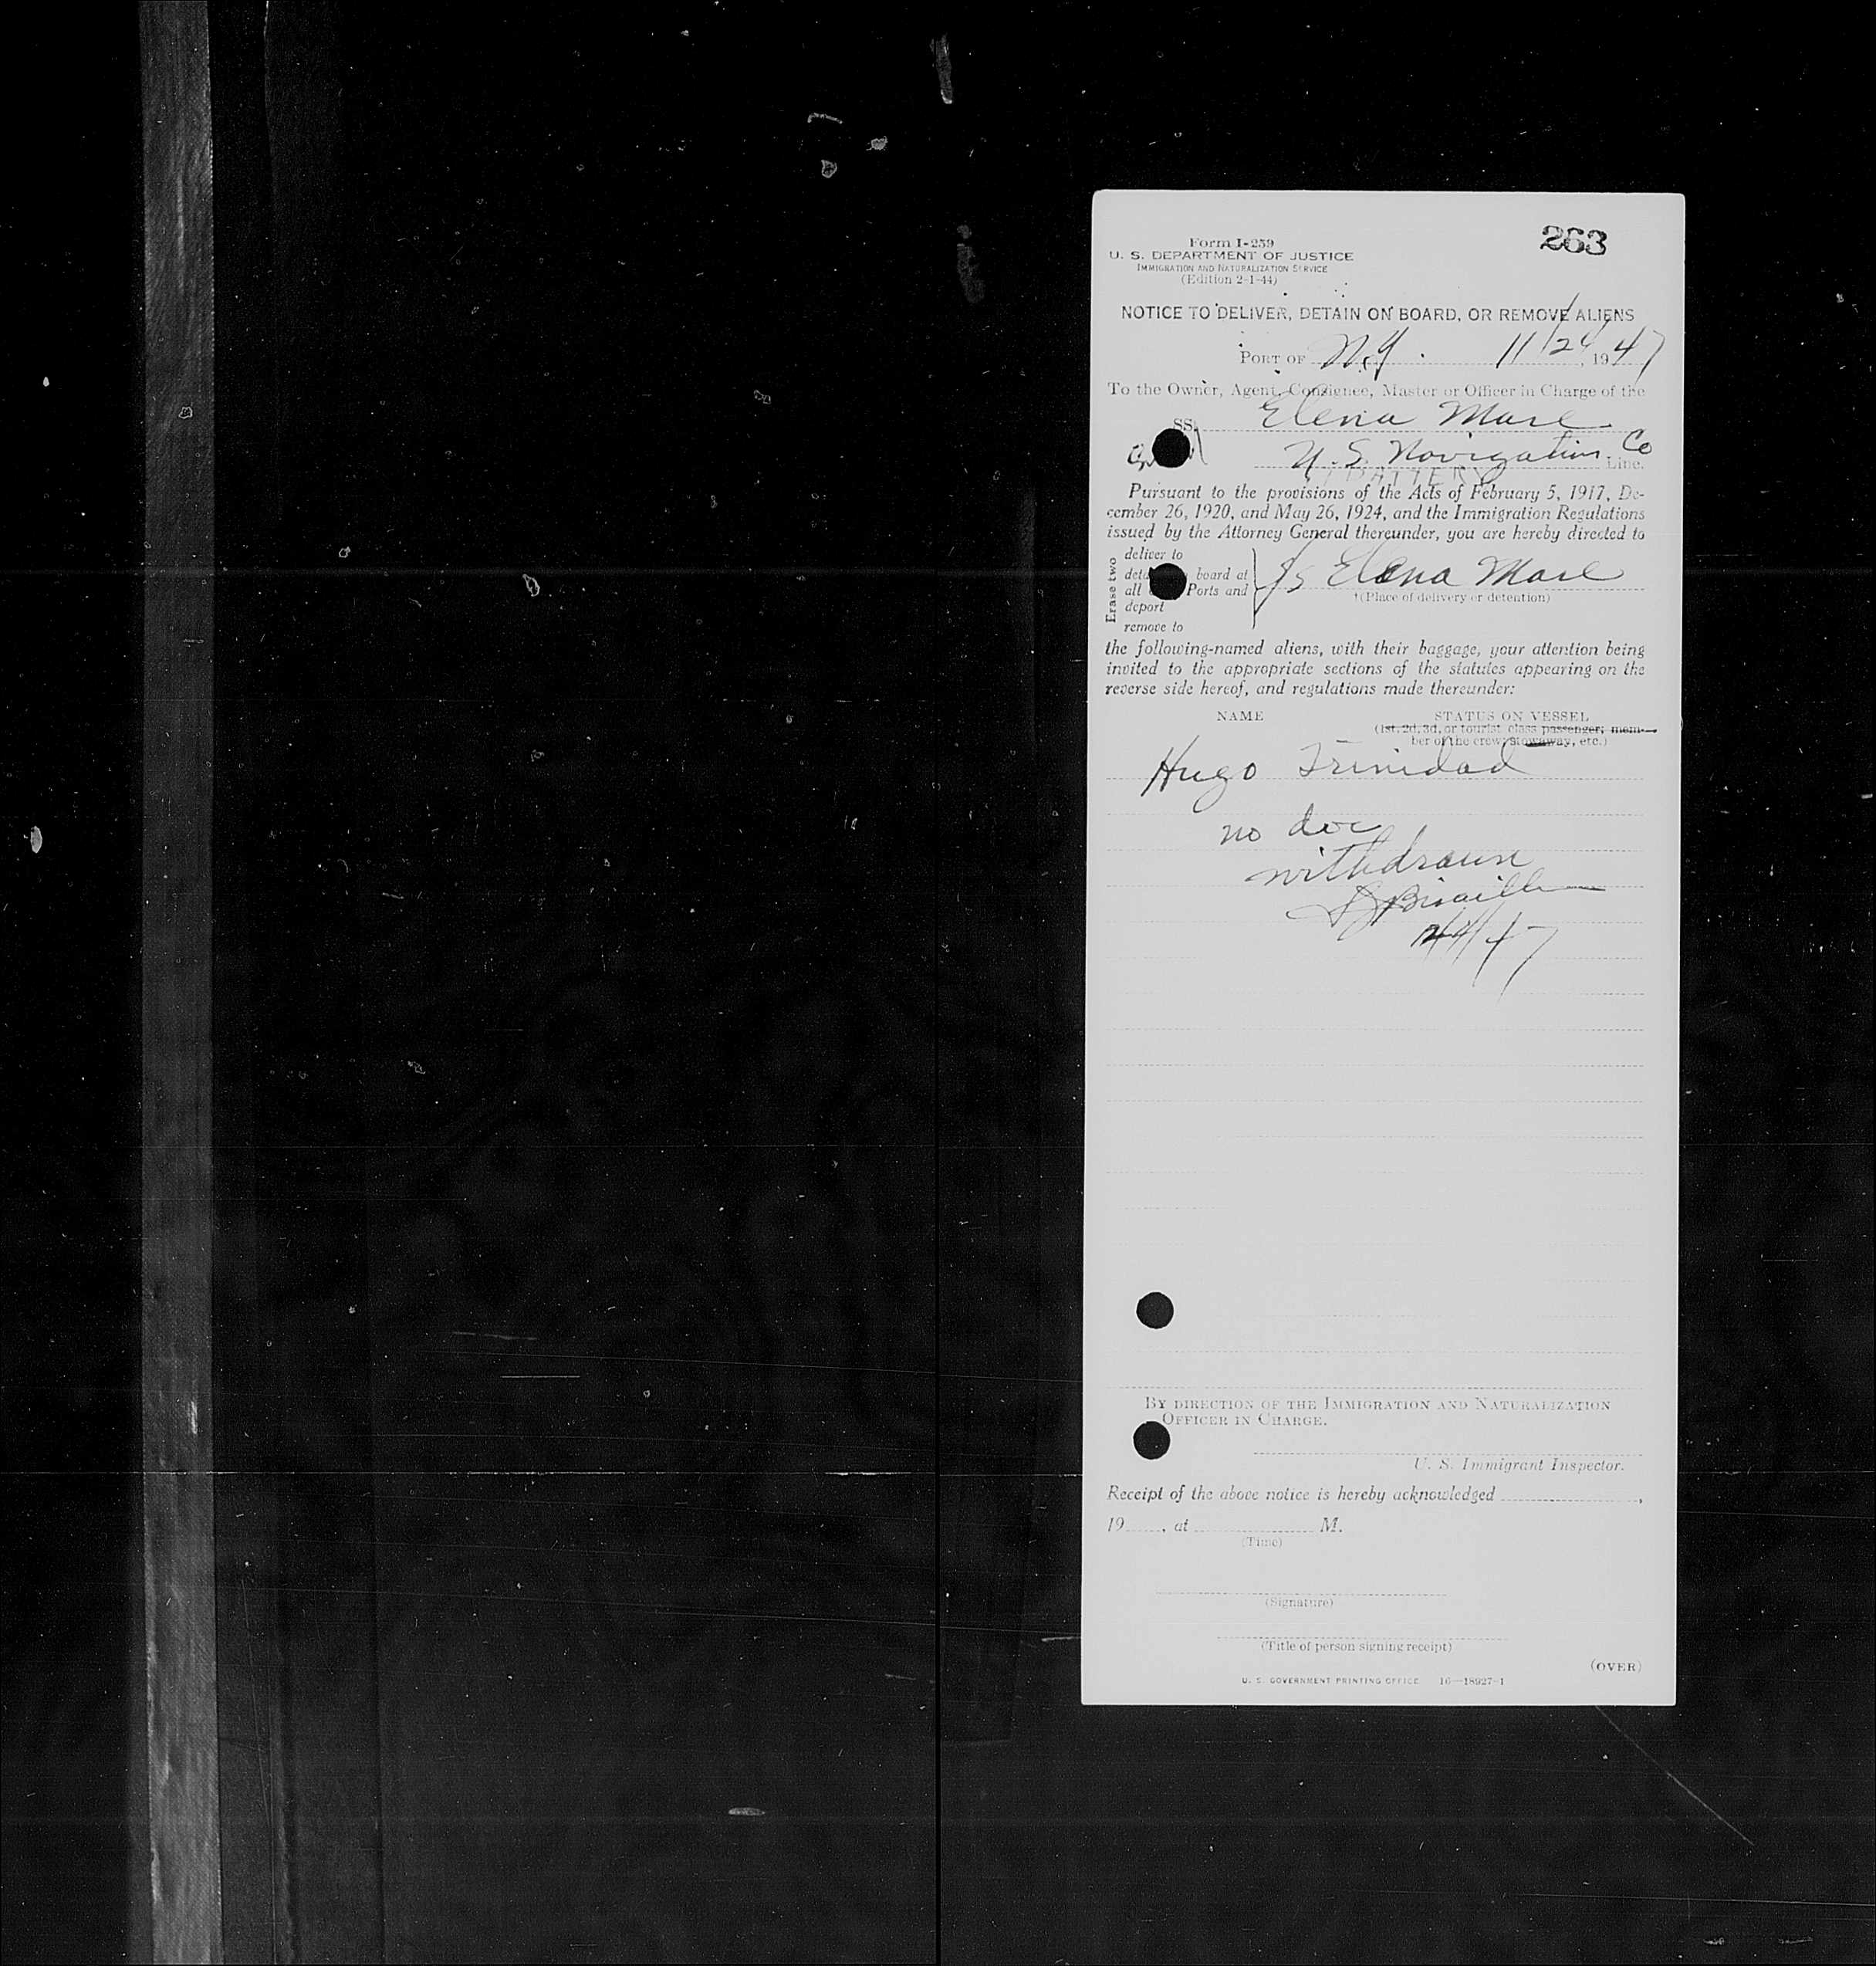 263
Form I-259
U. S. DEPARTMENT OF JUSTICE
IMMIGRATION AND NATURALIZATION SERVICE
(Edition 2-1-44)
NOTICE TO DELIVER, DETAIN ON BOARD, OR REMOVE ALIENS
PORT OF N.Y. 11/24, 1947
To the Owner, Agent, Consignee, Master or Officer in Charge of the
SS Elena Marl
U.S. Navigation Co Line.
BATTERY
Pursuant to the provisions of the Acts of February 5, 1917, De-
cember 26, 1920, and May 26, 1924, and the Immigration Regulations
issued by the Attorney General thereunder, you are hereby directed to
Erase two
deliver to
board at
all Ports and
deport
remove to
SS Elena Marl
†(Place of delivery or detention)
the following-named aliens, with their baggage, your attention being
invited to the appropriate sections of the statutes appearing on the
reverse side hereof, and regulations made thereunder:
NAME STATUS ON VESSEL
(1st, 2d, 3d, or tourist class passenger; mem-
ber of the crew; stowaway, etc.)
Hugo Trinidad
no doc
withdrawn
BY DIRECTION OF THE IMMIGRATION AND NATURALIZATION
OFFICER IN CHARGE.
U. S. Immigrant Inspector.
Receipt of the above notice is hereby acknowledged ,
19 , at M.
(Time)
(Signature)
(Title of person signing receipt)
(OVER)
U. S. GOVERNMENT PRINTING OFFICE 16—18927-1